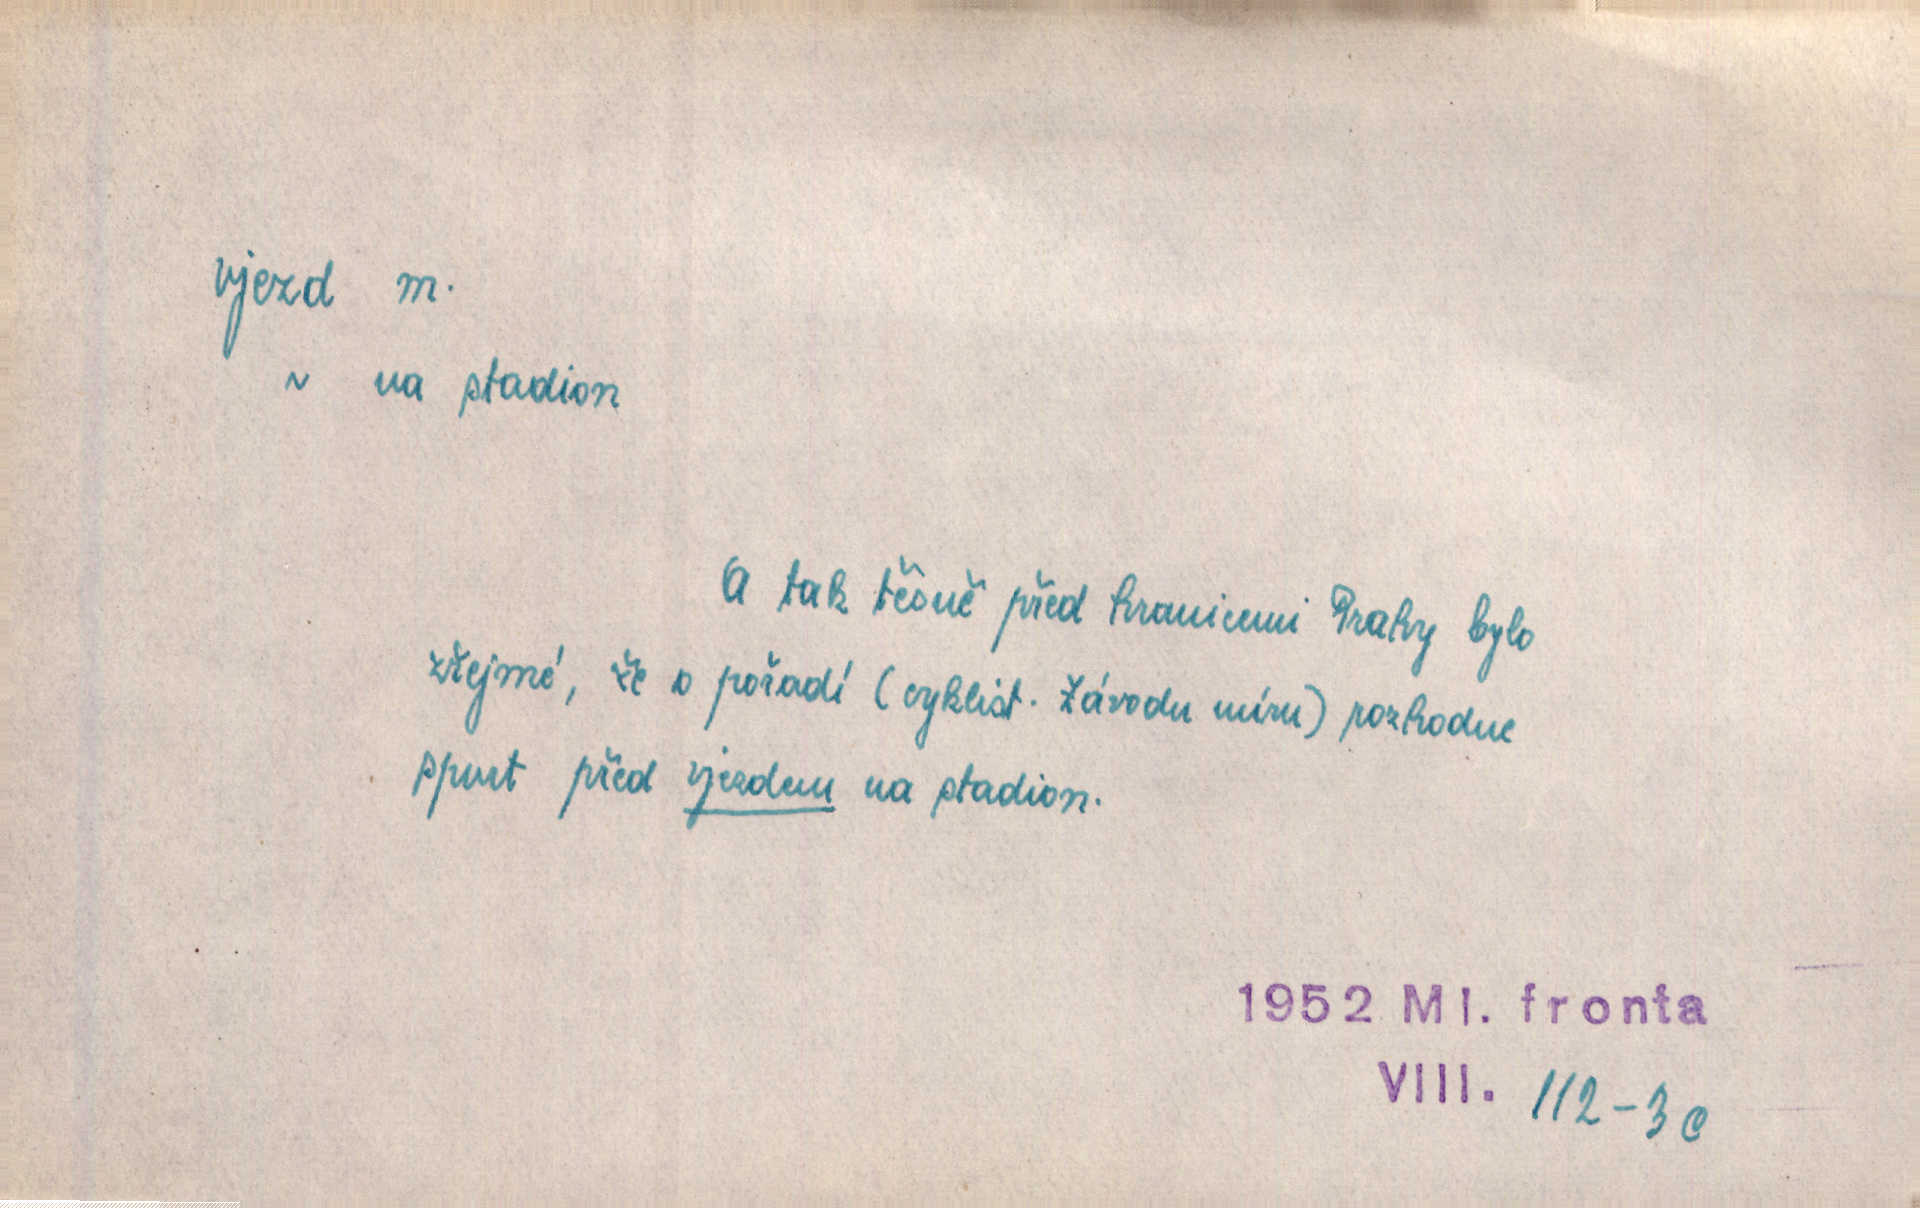 vjezd m.
~ na stadion
A tak těsně před hranicemi Prahy bylo
zřejmé, že o pořadí (cyklist. Závodu míru) rozhodne
spurt před vjezdem na stadion.
1952 Ml. fronta
VIII. 112-3c